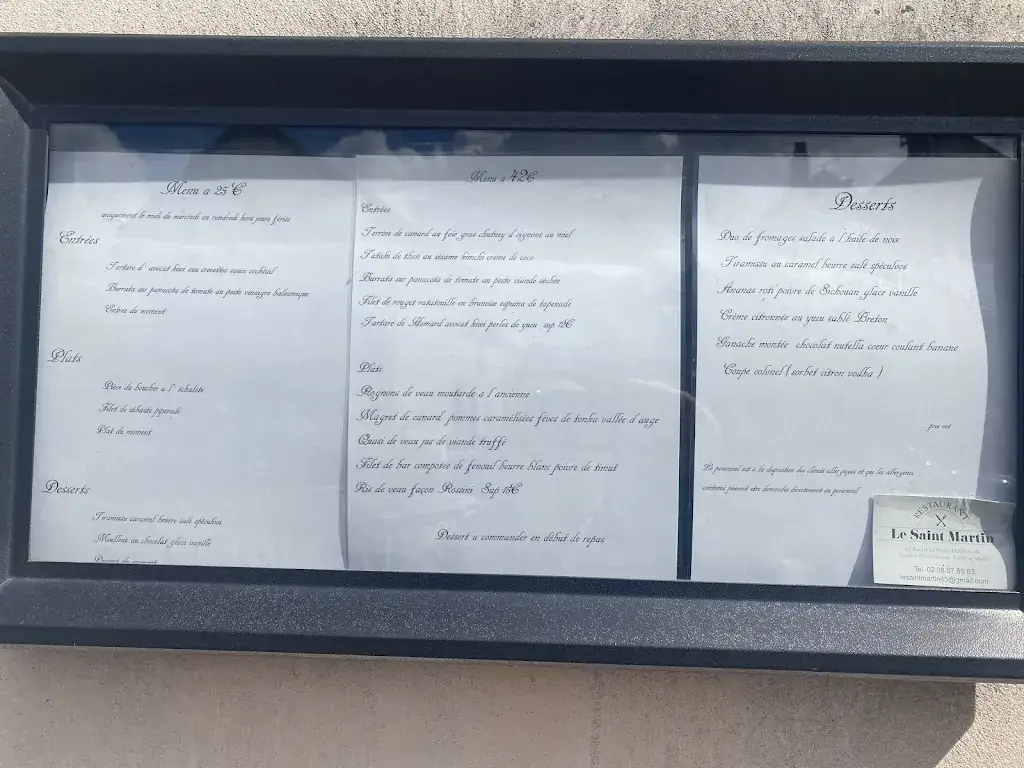 Menu a 25€
uniquement le midi du mercredi au vendredi hors jours fériés
Entrées
Tartare d' avocat kiwi aux crevettes sauce cocktail
Burrata sur panacota de tomate au pesto vinaigre balsamique
Entrée du moment
Plats
Pièce du boucher a l' échalote
Filet de sébaste piperade
Plat du moment
Desserts
Tiramissu caramel beurre salé spéculoos
Moelleux au chocolat glace vanille
Dessert du moment
Menu a 42€
Entrées
Terrine de canard au foie gras chutney d'oignons au miel
Tataki de thon au sésame kimchi crème de coco
Burrata sur panacota de tomate au pesto viande séchée
Filet de rouget ratatouille en brunoise espuma de tapenade
Tartare de Homard avocat kiwi perles de yuzu sup 12€
Plats
Rognons de veau moutarde a l'ancienne
Magret de canard pommes caramélisées fèves de tonka vallée d'auge
Quasi de veau jus de viande truffé
Filet de bar compotée de fenouil beurre blanc poivre de timut
Ris de veau façon Rossini Sup 15€
Dessert a commander en début de repas
Desserts
Duo de fromages salade a l'huile de noix
Tiramissu au caramel beurre salé spéculoos
Ananas roti poivre de Sichouan glace vanille
Crème citronnée au yuzu sablé Breton
Ganache montée chocolat nutella coeur coulant banane
Coupe colonel ( sorbet citron vodka )
prix net
Le personnel est a la disposition des clients allergiques et que les allergènes
contenus peuvent etre demandés directement au personnel
RESTAURANT
Le Saint Martin
Tel. 02.38.87.89.83
lesaintmartin45@gmail.com